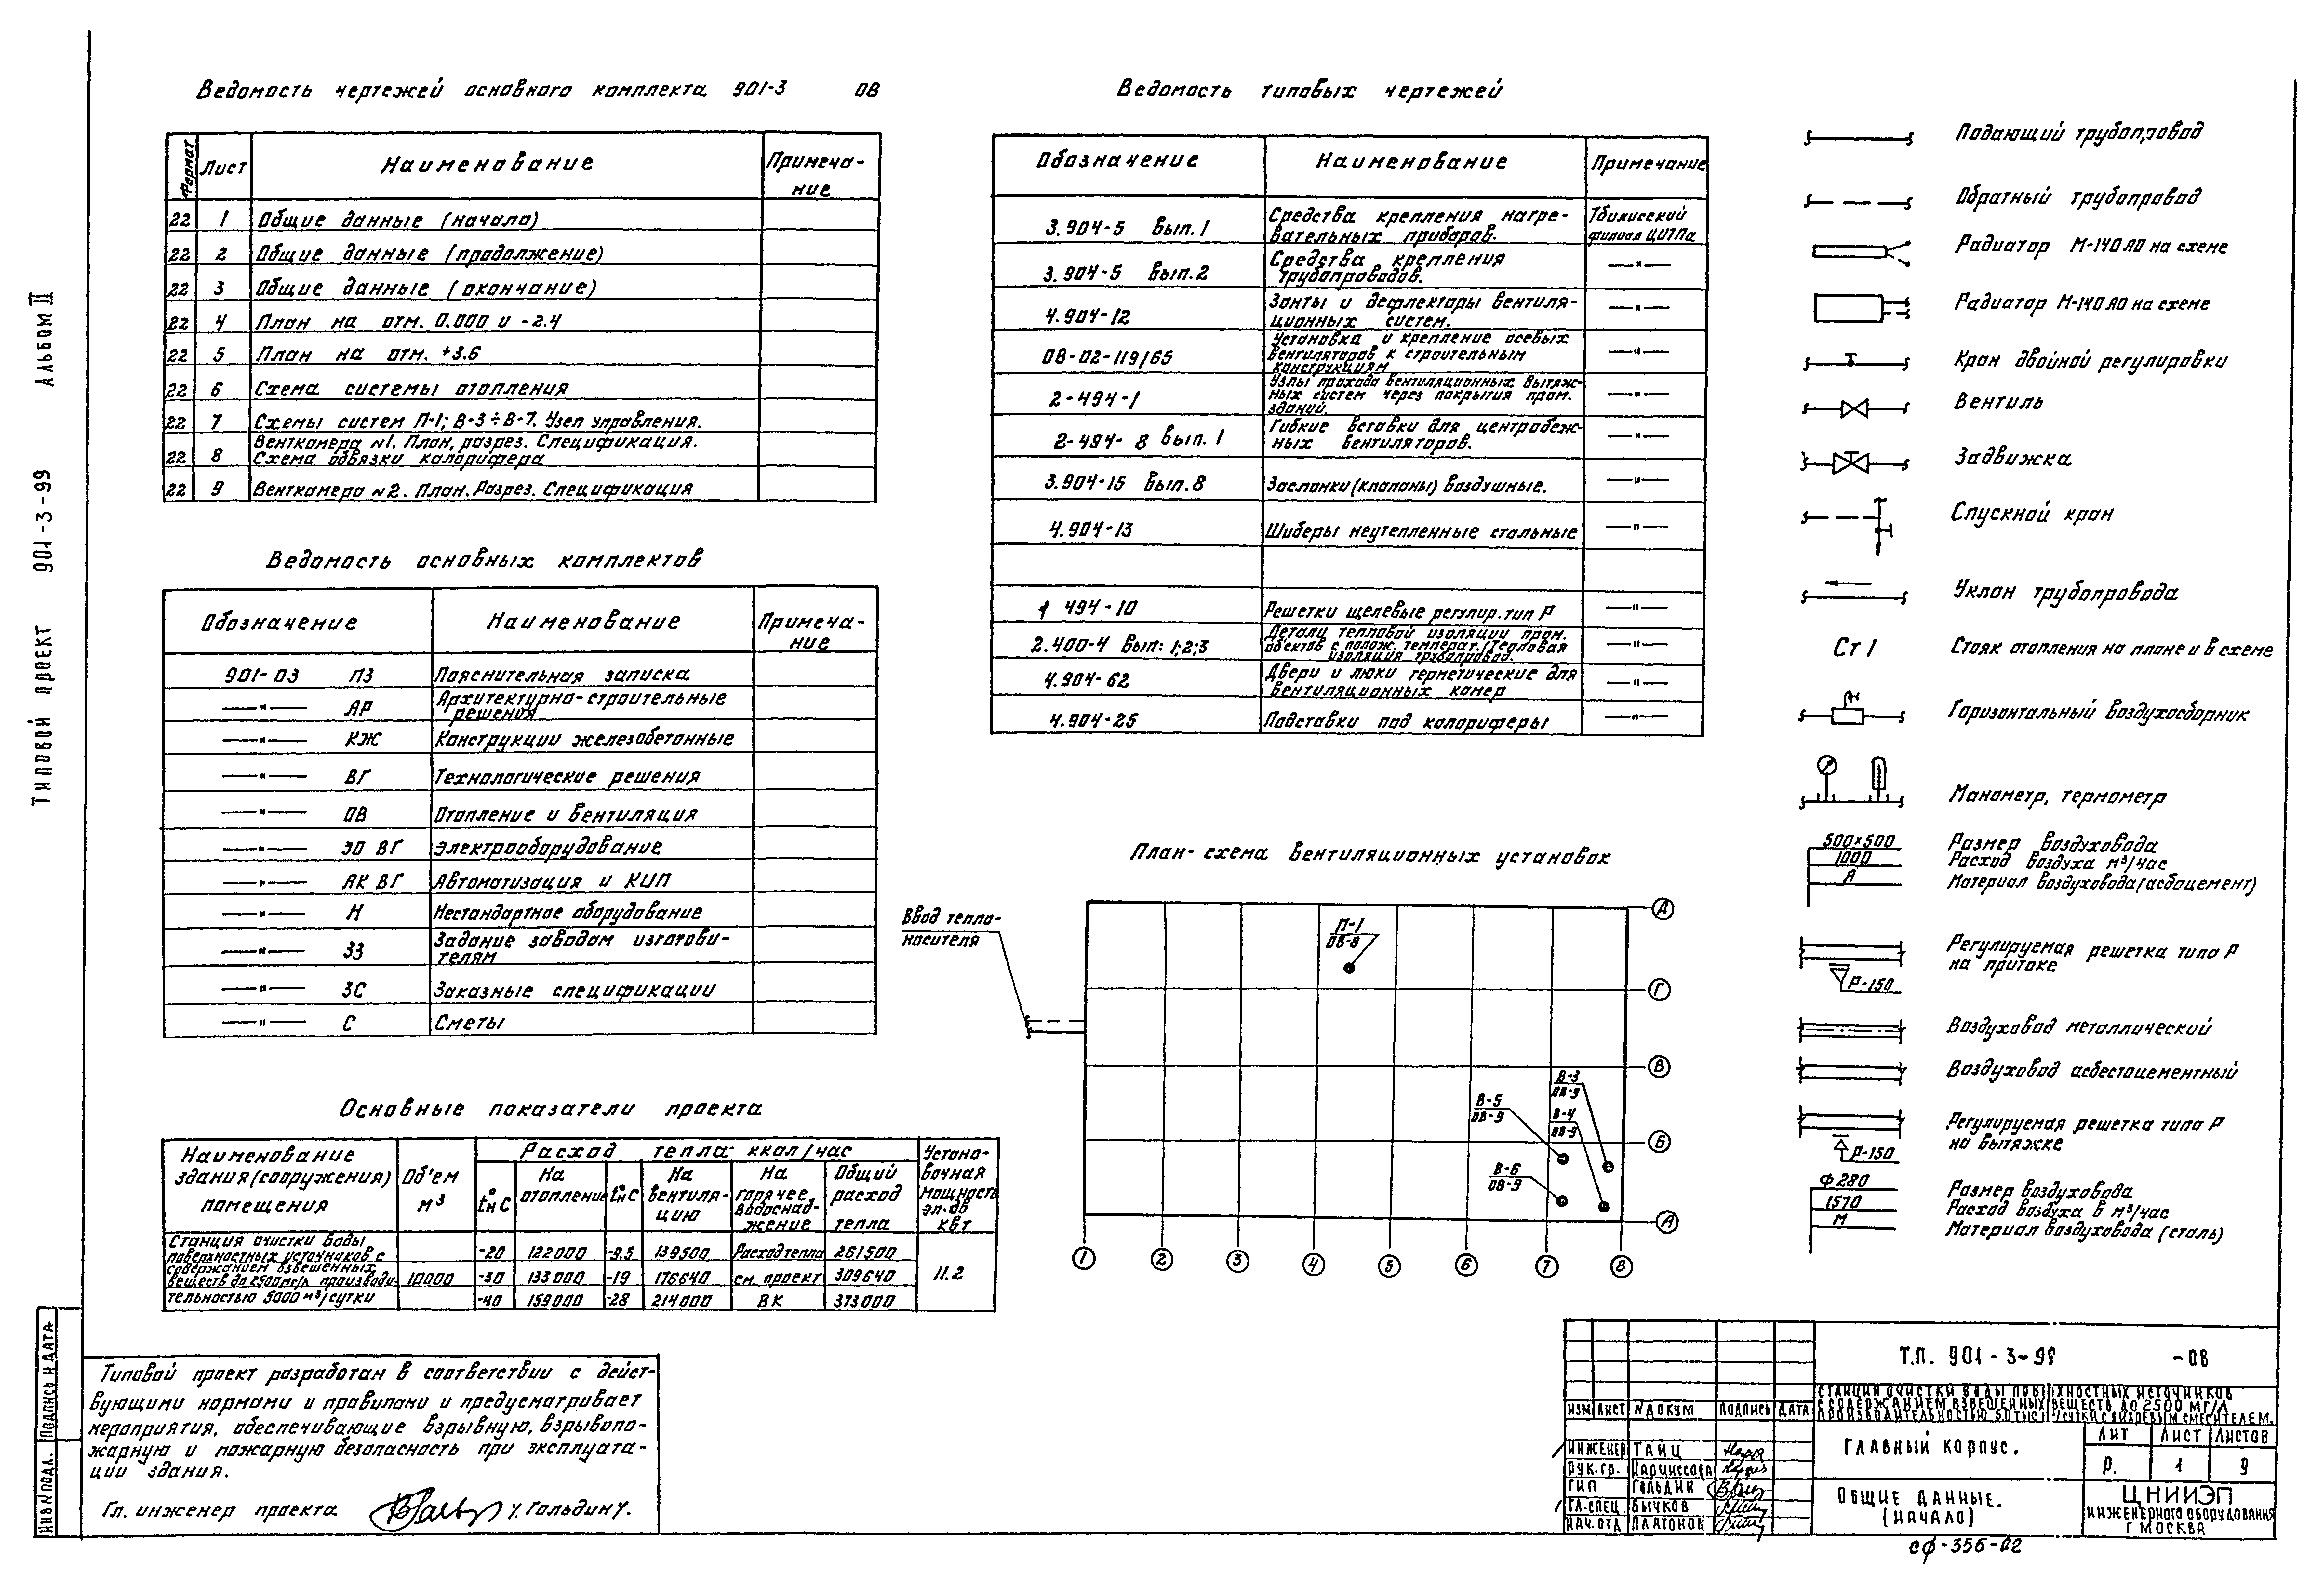 Типовой проект 901-3-99 Альбом II
Ведомость чертежей основного комплекта 901-3 ОВ
Формат Лист Наименование Примеча-
ние
22 1 Общие данные (начало)
22 2 Общие данные (продолжение)
22 3 Общие данные (окончание)
22 4 План на отм. 0.000 и -2.4
22 5 План на отм. +3.6
22 6 Схема системы отопления
22 7 Схемы систем П-1; В-3÷В-7. Узел управления.
22 8 Венткамера №1. План, разрез. Спецификация.
Схема обвязки калорифера
22 9 Венткамера №2. План. Разрез. Спецификация
Ведомость основных комплектов
Обозначение Наименование Примеча-
ние
901-03 ПЗ Пояснительная записка
—"— АР Архитектурно-строительные
решения
—"— КЖ Конструкции железобетонные
—"— ВГ Технологические решения
—"— ОВ Отопление и вентиляция
—"— ЭО ВГ Электрооборудование
—"— АК ВГ Автоматизация и КИП
—"— Н Нестандартное оборудование
—"— ЗЗ Задание заводам изготови-
телям
—"— ЗС Заказные спецификации
—"— С Сметы
Основные показатели проекта
Наименование
здания (сооружения)
помещения
Об'ем
м³
Расход тепла ккал/час
tн°С
На
отопление
tн°С
На
вентиля-
цию
На
горячее
водоснаб-
жение
Общий
расход
тепла
Устано-
вочная
мощность
эл.дв
квт
Станция очистки воды
поверхностных источников с
содержанием взвешенных
веществ до 2500мг/л производи-
тельностью 5000 м³/сутки
10000
-20 122000 -9.5 139500 Расход тепла 261500
-30 133000 -19 176640 см. проект 309640
-40 159000 -28 214000 ВК 373000
11.2
Типовой проект разработан в соответствии с дейст-
вующими нормами и правилами и предусматривает
мероприятия, обеспечивающие взрывную, взрывопо-
жарную и пожарную безопасность при эксплуата-
ции здания.
Гл. инженер проекта /. Гольдин /.
Ведомость типовых чертежей
Обозначение Наименование Примечание
3.904-5 Вып.1 Средства крепления нагре-
вательных приборов.
Тбилисский
филиал ЦИТПа
3.904-5 Вып.2 Средства крепления
трубопроводов. —"—
4.904-12 Зонты и дефлекторы вентиля-
ционных систем. —"—
ОВ-02-119/65 Установка и крепление осевых
вентиляторов к строительным
конструкциям —"—
2-494-1 Узлы прохода вентиляционных вытяж-
ных систем через покрытия пром.
зданий. —"—
2-494-8 вып.1 Гибкие вставки для центробеж-
ных вентиляторов. —"—
3.904-15 Вып.8 Заслонки (клапаны) воздушные. —"—
4.904-13 Шиберы неутепленные стальные —"—
1 494-10 Решетки щелевые регулир. тип Р —"—
2.400-4 Вып: 1;2;3 Детали тепловой изоляции пром.
объектов с полож. температ. /Тепловая
изоляция трубопровод. —"—
4.904-62 Двери и люки герметические для
вентиляционных камер —"—
4.904-25 Подставки под калориферы —"—
План-схема вентиляционных установок
Ввод тепло-
носителя
П-1
ОВ-8
В-3
ОВ-9
В-4
ОВ-9
В-5
ОВ-9
В-6
ОВ-9
Д
Г
В
Б
А
1 2 3 4 5 6 7 8
Подающий трубопровод
Обратный трубопровод
Радиатор М-140 АО на схеме
Радиатор М-140 АО на схеме
Кран двойной регулировки
Вентиль
Задвижка
Спускной кран
Уклон трубопровода
Ст 1 Стояк отопления на плане и в схеме
Горизонтальный воздухосборник
Манометр, термометр
500×500 Размер воздуховода
1000 Расход воздуха м³/час
А Материал воздуховода (асбоцемент)
Регулируемая решетка типа Р
на притоке
Р-150
Воздуховод металлический
Воздуховод асбестоцементный
Регулируемая решетка типа Р
на вытяжке
Р-150
ф280 Размер воздуховода
1570 Расход воздуха в м³/час
М Материал воздуховода (сталь)
Т.П. 901-3-99 -ОВ
Станция очистки воды поверхностных источников
с содержанием взвешенных веществ до 2500 мг/л
производительностью 5.0 тыс м³/сутки с вихревым смесителем.
Изм Лист N докум Подпись Дата
Инженер Тайц
Рук.гр. Нарциссова
ГИП Гольдин
Гл.спец. Бычков
Нач.отд Платонов
Главный корпус.
Лит Лист Листов
Р. 1 9
Общие данные.
(начало)
ЦНИИЭП
инженерного оборудования
г Москва
сф-356-02
Инв N подл. Подпись и дата